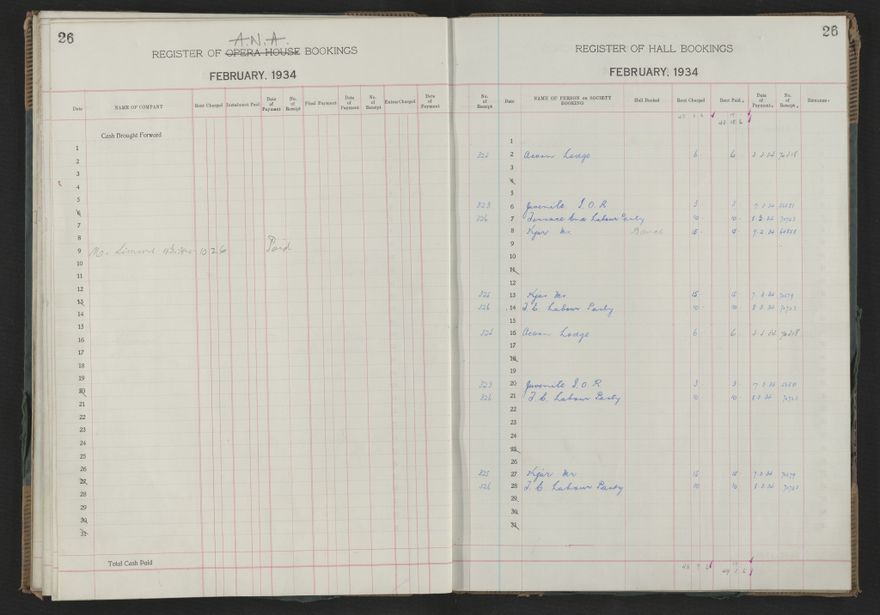 26
A.N.A.
REGISTER OF OPERA HOUSE BOOKINGS
FEBRUARY, 1934
Date NAME OF COMPANY Rent Charged Instalment Paid Date of Payment No. of Receipt Final Payment Date of Payment No. of Receipt Extras Charged Date of Payment
Cash Brought Forward
1
2
3
4
5
6
7
8
9 10 2 6 Paid
10
11
12
13
14
15
16
17
18
19
20
21
22
23
24
25
26
27
28
29
30
31
Total Cash Paid
26
REGISTER OF HALL BOOKINGS
FEBRUARY, 1934
No. of Receipt Date NAME OF PERSON OR SOCIETY BOOKING Hall Booked Rent Charged Rent Paid. Date of Payment. No. of Receipt. REMARKS.
1
2 Acorn Lodge 6 6
3
4
5
6 Juvenile I.O.R 3 3
326 7 Terrace End Labour Party 10 10
8 Kjar Mr 15 15
9
10
11
12
325 13 Kjar Mr 15 15
326 14 T.E. Labour Party 10 10
15
16 Acorn Lodge 6 6
17
18
19
20 Juvenile I.O.R 3 3
326 21 T.E. Labour Party 10 10
22
23
24
25
26
325 27 Kjar Mr 15 15
326 28 T.E Labour Party 10 10
29
30
31